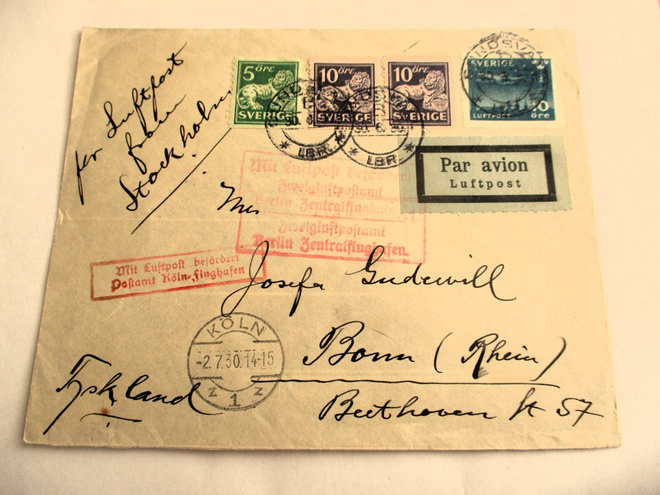 per Luftpost
från
Stockholm
5 öre
SVERIGE
10 öre
SVERIGE
10 öre
SVERIGE
SVERIGE
LUFTPOST
öre
LBR
LBR
Par avion
Luftpost
Mit Luftpost befördert
Zweigluftpostamt
Berlin Zentralflughafen
Zweigluftpostamt
Berlin Zentralflughafen.
Mit Luftpost befördert
Postamt Köln-Flughafen
Josefa Gudewill
Bonn (Rhein)
Beethoven St 57
Tyskland
KÖLN
-2.7.30.14-15
z 1 z